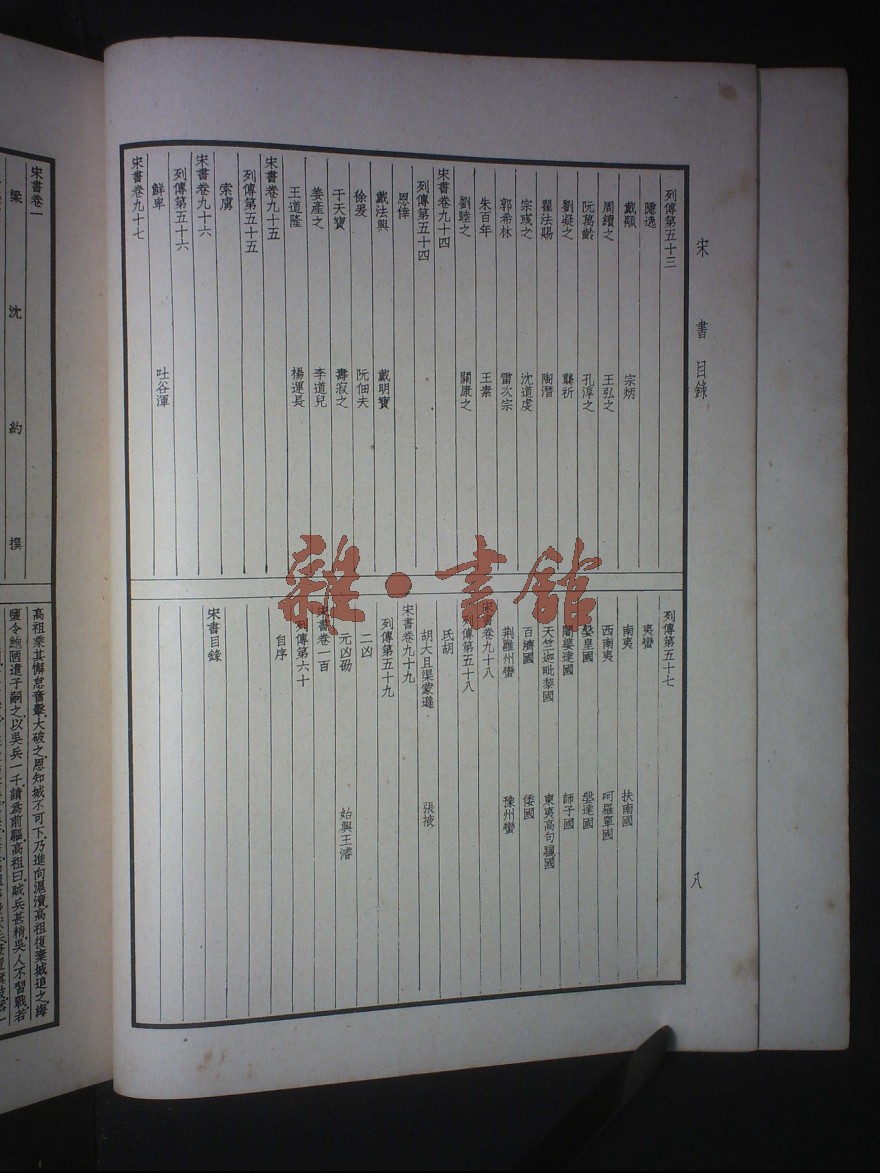 宋書目錄
八
列傳第五十三
隱逸
戴顒 宗炳
周續之 王弘之
阮萬齡 孔淳之
劉凝之 龔祈
翟法賜 陶潛
宗彧之 沈道虔
郭希林 雷次宗
朱百年 王素
劉睦之 關康之
宋書卷九十四
列傳第五十四
恩倖
戴法興 戴明寶
徐爰 阮佃夫
于天寶 壽寂之
姜產之 李道兒
王道隆 楊運長
宋書卷九十五
列傳第五十五
索虜
宋書卷九十六
列傳第五十六
鮮卑 吐谷渾
宋書卷九十七
列傳第五十七
夷蠻
南夷 扶南國
西南夷 呵羅單國
媻皇國 媻達國
闍婆達國 師子國
天竺迦毗黎國 東夷高句驪國
百濟國 倭國
荊雍州蠻 豫州蠻
宋書卷九十八
列傳第五十八
氐胡
胡大且渠蒙遜 張掖
宋書卷九十九
列傳第五十九
二凶
元凶劭 始興王濬
宋書卷一百
列傳第六十
自序
宋書目錄
雜·書館
宋書卷一
梁 沈約撰
高祖乘其懈怠奮擊大破之恩知城不可下乃進向滬瀆高祖復棄城追之海
鹽令鮑陋遣子嗣之以吳兵一千請為前驅高祖曰賊兵甚精吳人不習戰若